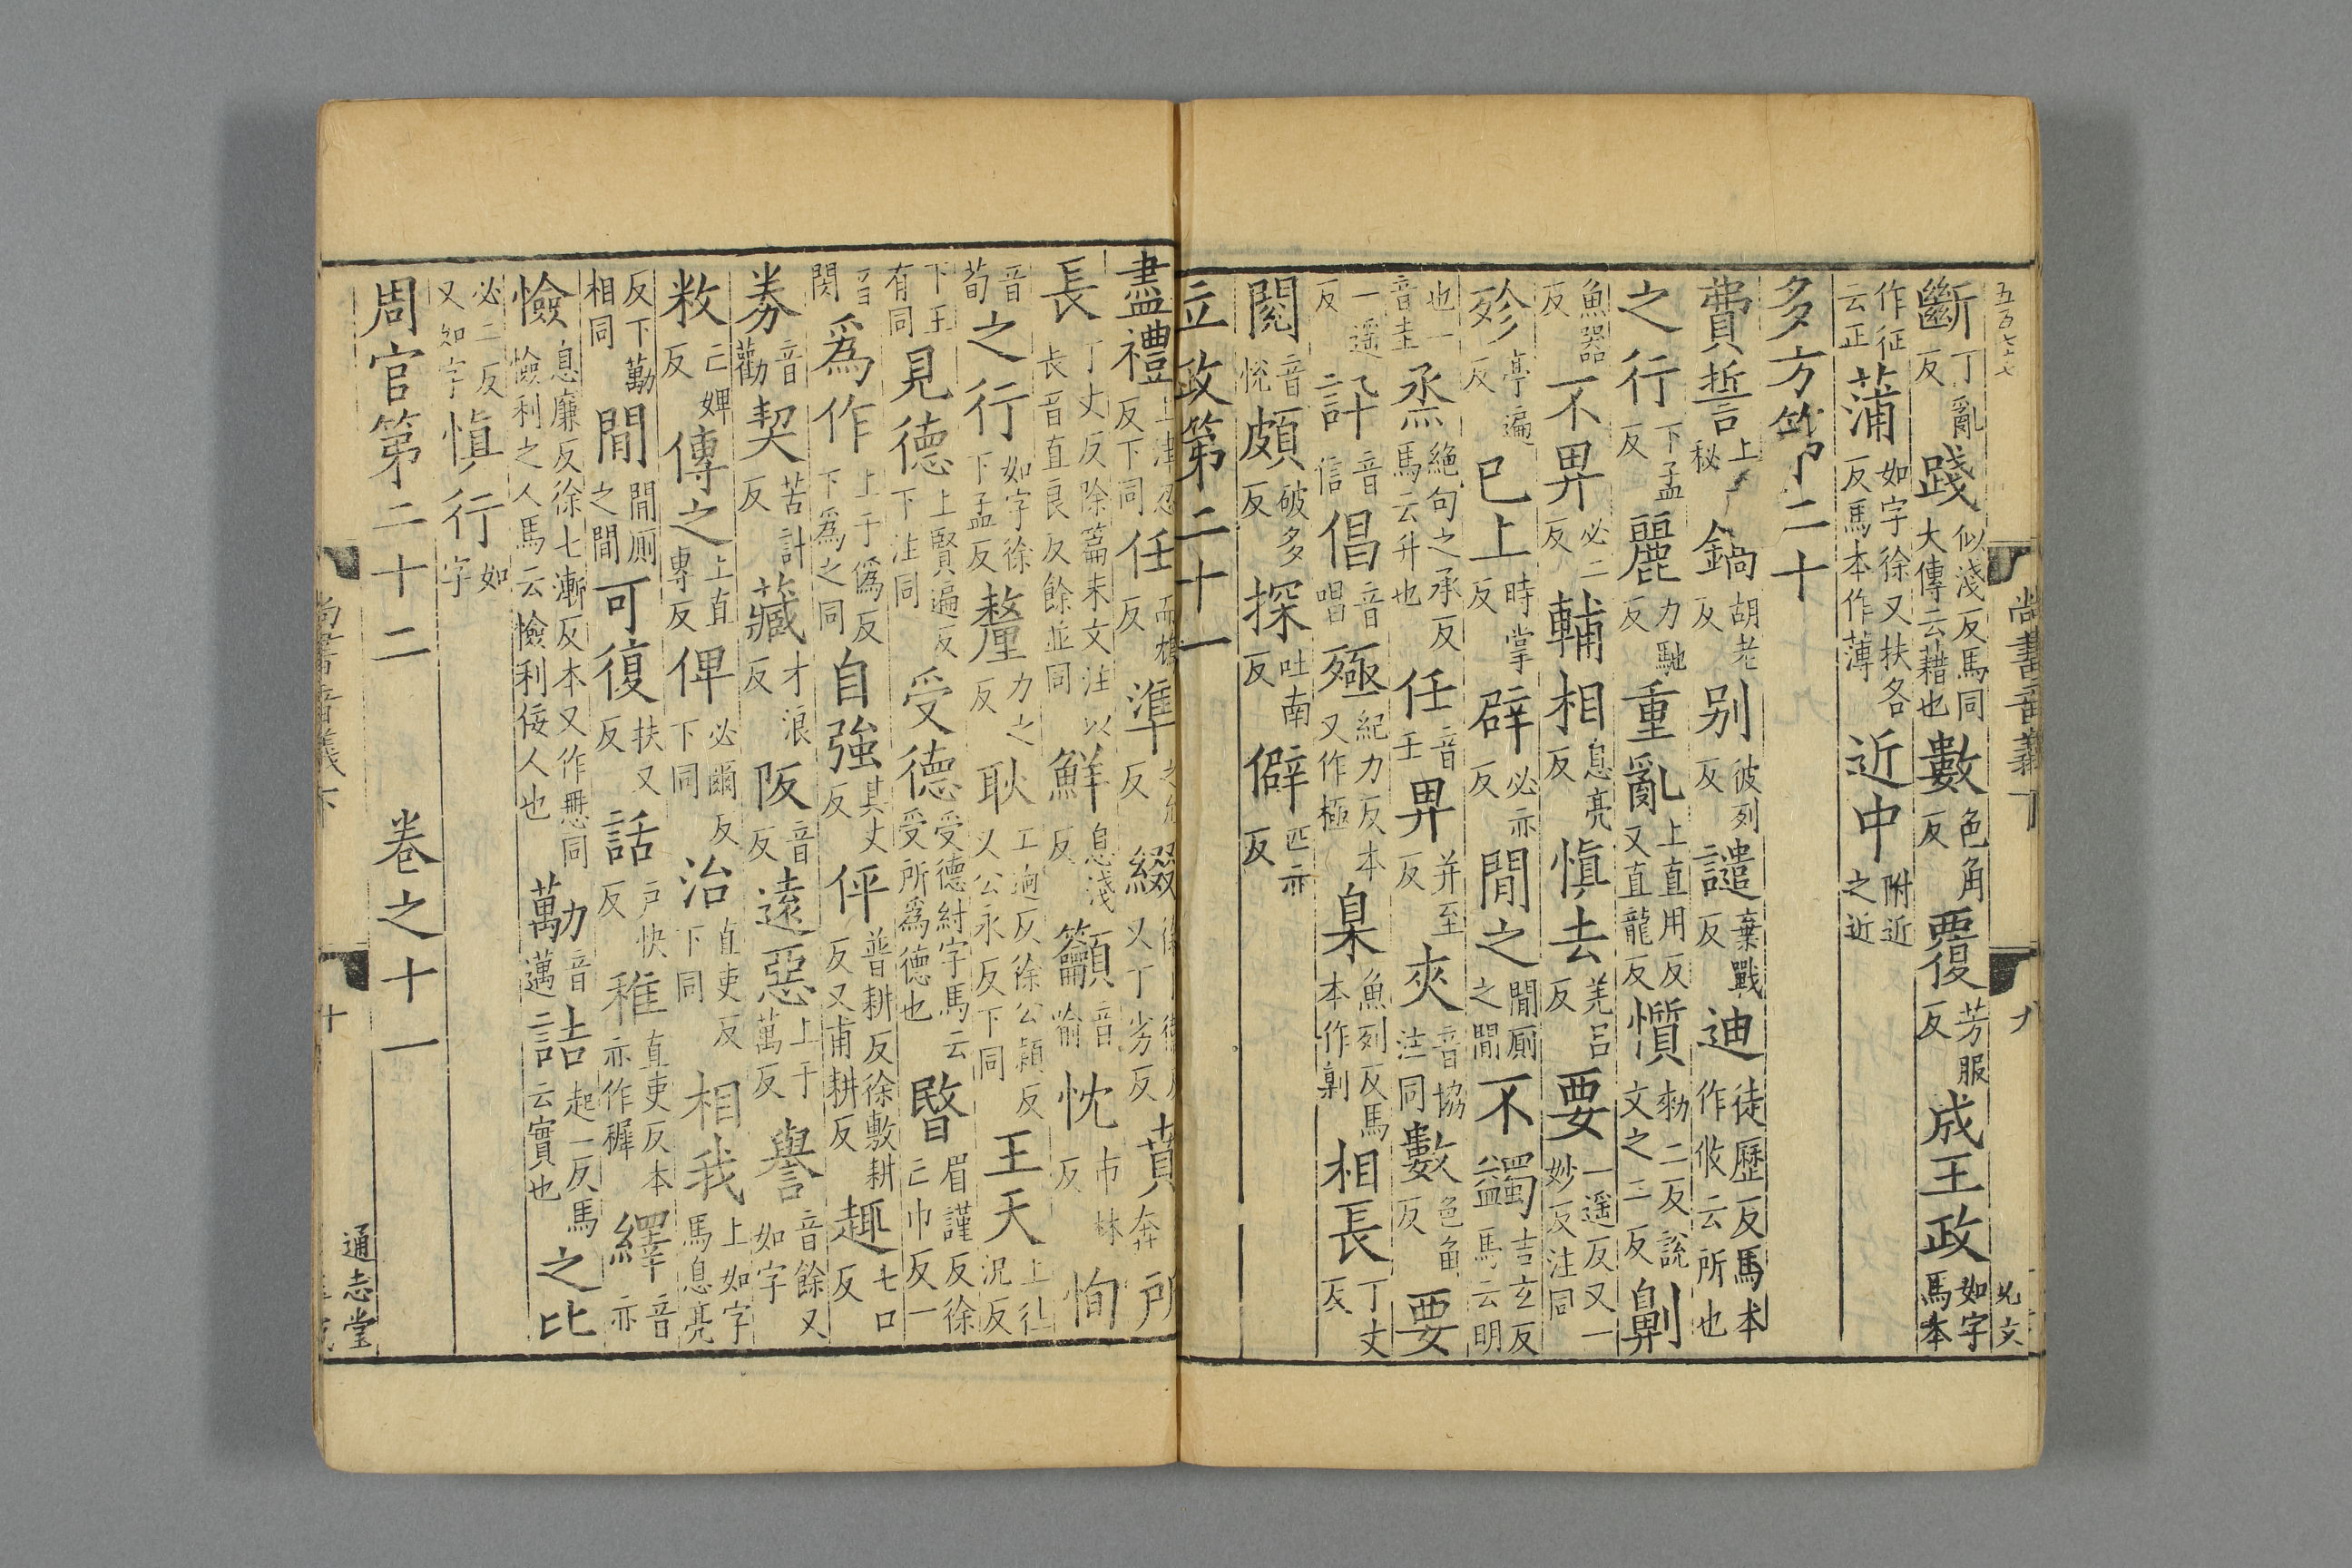 斷丁亂反踐似淺反馬同大傳云藉也數色角反覆芳服反成王政如字馬本
作征云正蒲如字徐又扶各反馬本作薄近中附近之近
多方第二十
費誓上秘鎬胡老反别彼列反譴棄戰反迪徒歷反馬本作攸云所也
之行下孟反麗力馳反重亂上直用反又直龍反懫勑二反說文之二反劓
魚器反不畀必二反輔相息亮反愼去羌呂反要一遥反又一妙反注同
殄亭遍反已上時掌反辟必亦反閒之閒厠之閒不蠲吉玄反馬云明
也一音圭烝絶句之承反馬云升也任音壬畀并至反夾音協注同數色角反要
一遥反訃音信倡音唱殛紀力反本又作極臬魚列反馬本作劓相長丁丈反
閱音恱頗破多反探吐南反僻匹亦反
立政第二十一
盡禮上津忍反下同任反準反綴又丁劣反賁奔所
長丁丈反除篇末文注以長音直良反餘並同鮮息淺反籲音喻忱市林反恂
音荀之行如字徐下孟反釐力之反耿工迥反徐公穎反又公永反下同王天上往況反
下王有同見德上賢遍反下注同受德受德紂字馬云受所爲德也暋眉謹反徐亡巾反一
音閔爲作上于僞反下爲之同自強其丈反伻普耕反徐敷耕反又甫耕反趣七口反
券音勸契苦計反藏才浪反阪音反遠惡上于萬反譽音餘又如字
敉亡婢反傳之上直專反俾必爾反下同治直吏反下同相我上如字馬息亮
反下勱相同閒閒厠之閒可復扶又反話戶快反稚直吏反本亦作稺繹音亦
憸息廉反徐七漸反本又作思同憸利之人馬云憸利佞人也勱音邁詰起一反馬云實也之比
必二反又如字愼行如字
周官第二十二　卷之十一
尚書音義下
九
十
通志堂